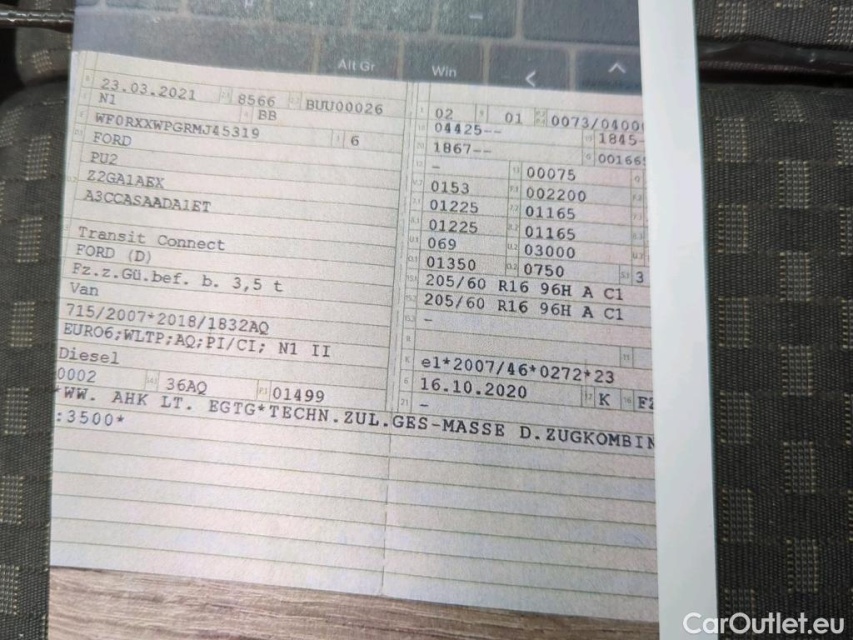 Alt Gr Win < ^
23.03.2021 8566 BUU00026
N1 BB
WF0RXXWPGRMJ45319 6
FORD
PU2
Z2GA1AEX
A3CCASAADA1ET
Transit Connect
FORD (D)
Fz.z.Gü.bef. b. 3,5 t
Van
715/2007*2018/1832AQ
EURO6;WLTP;AQ;PI/CI; N1 II
Diesel
0002 36AQ 01499
*WW. AHK LT. EGTG*TECHN.ZUL.GES-MASSE D.ZUGKOMBIN
:3500*
02 01 0073/0400
04425-- 1845-
1867-- 00166
- 00075
0153 002200
01225 01165
01225 01165
069 03000
01350 0750 3
205/60 R16 96H A C1
205/60 R16 96H A C1
-
e1*2007/46*0272*23
16.10.2020 K
-
CarOutlet.eu